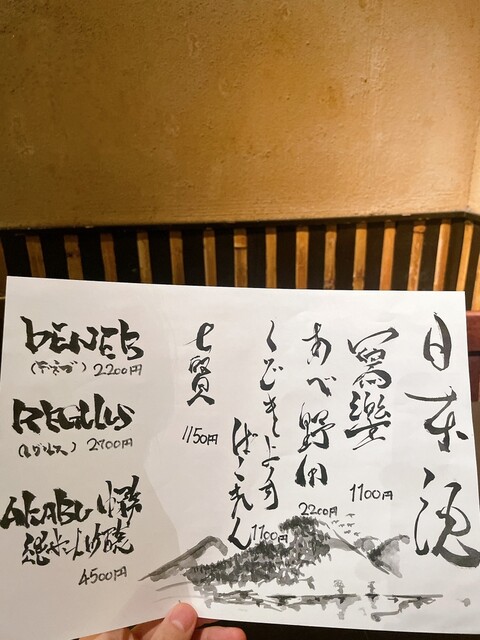 日本酒
寫樂
1100円
あべ 野田
2200円
くどき上手
ばくれん
1100円
七賢
1150円
DENEB
(デネブ) 2200円
REGULUS
(レグルス) 2700円
AKABU
4500円